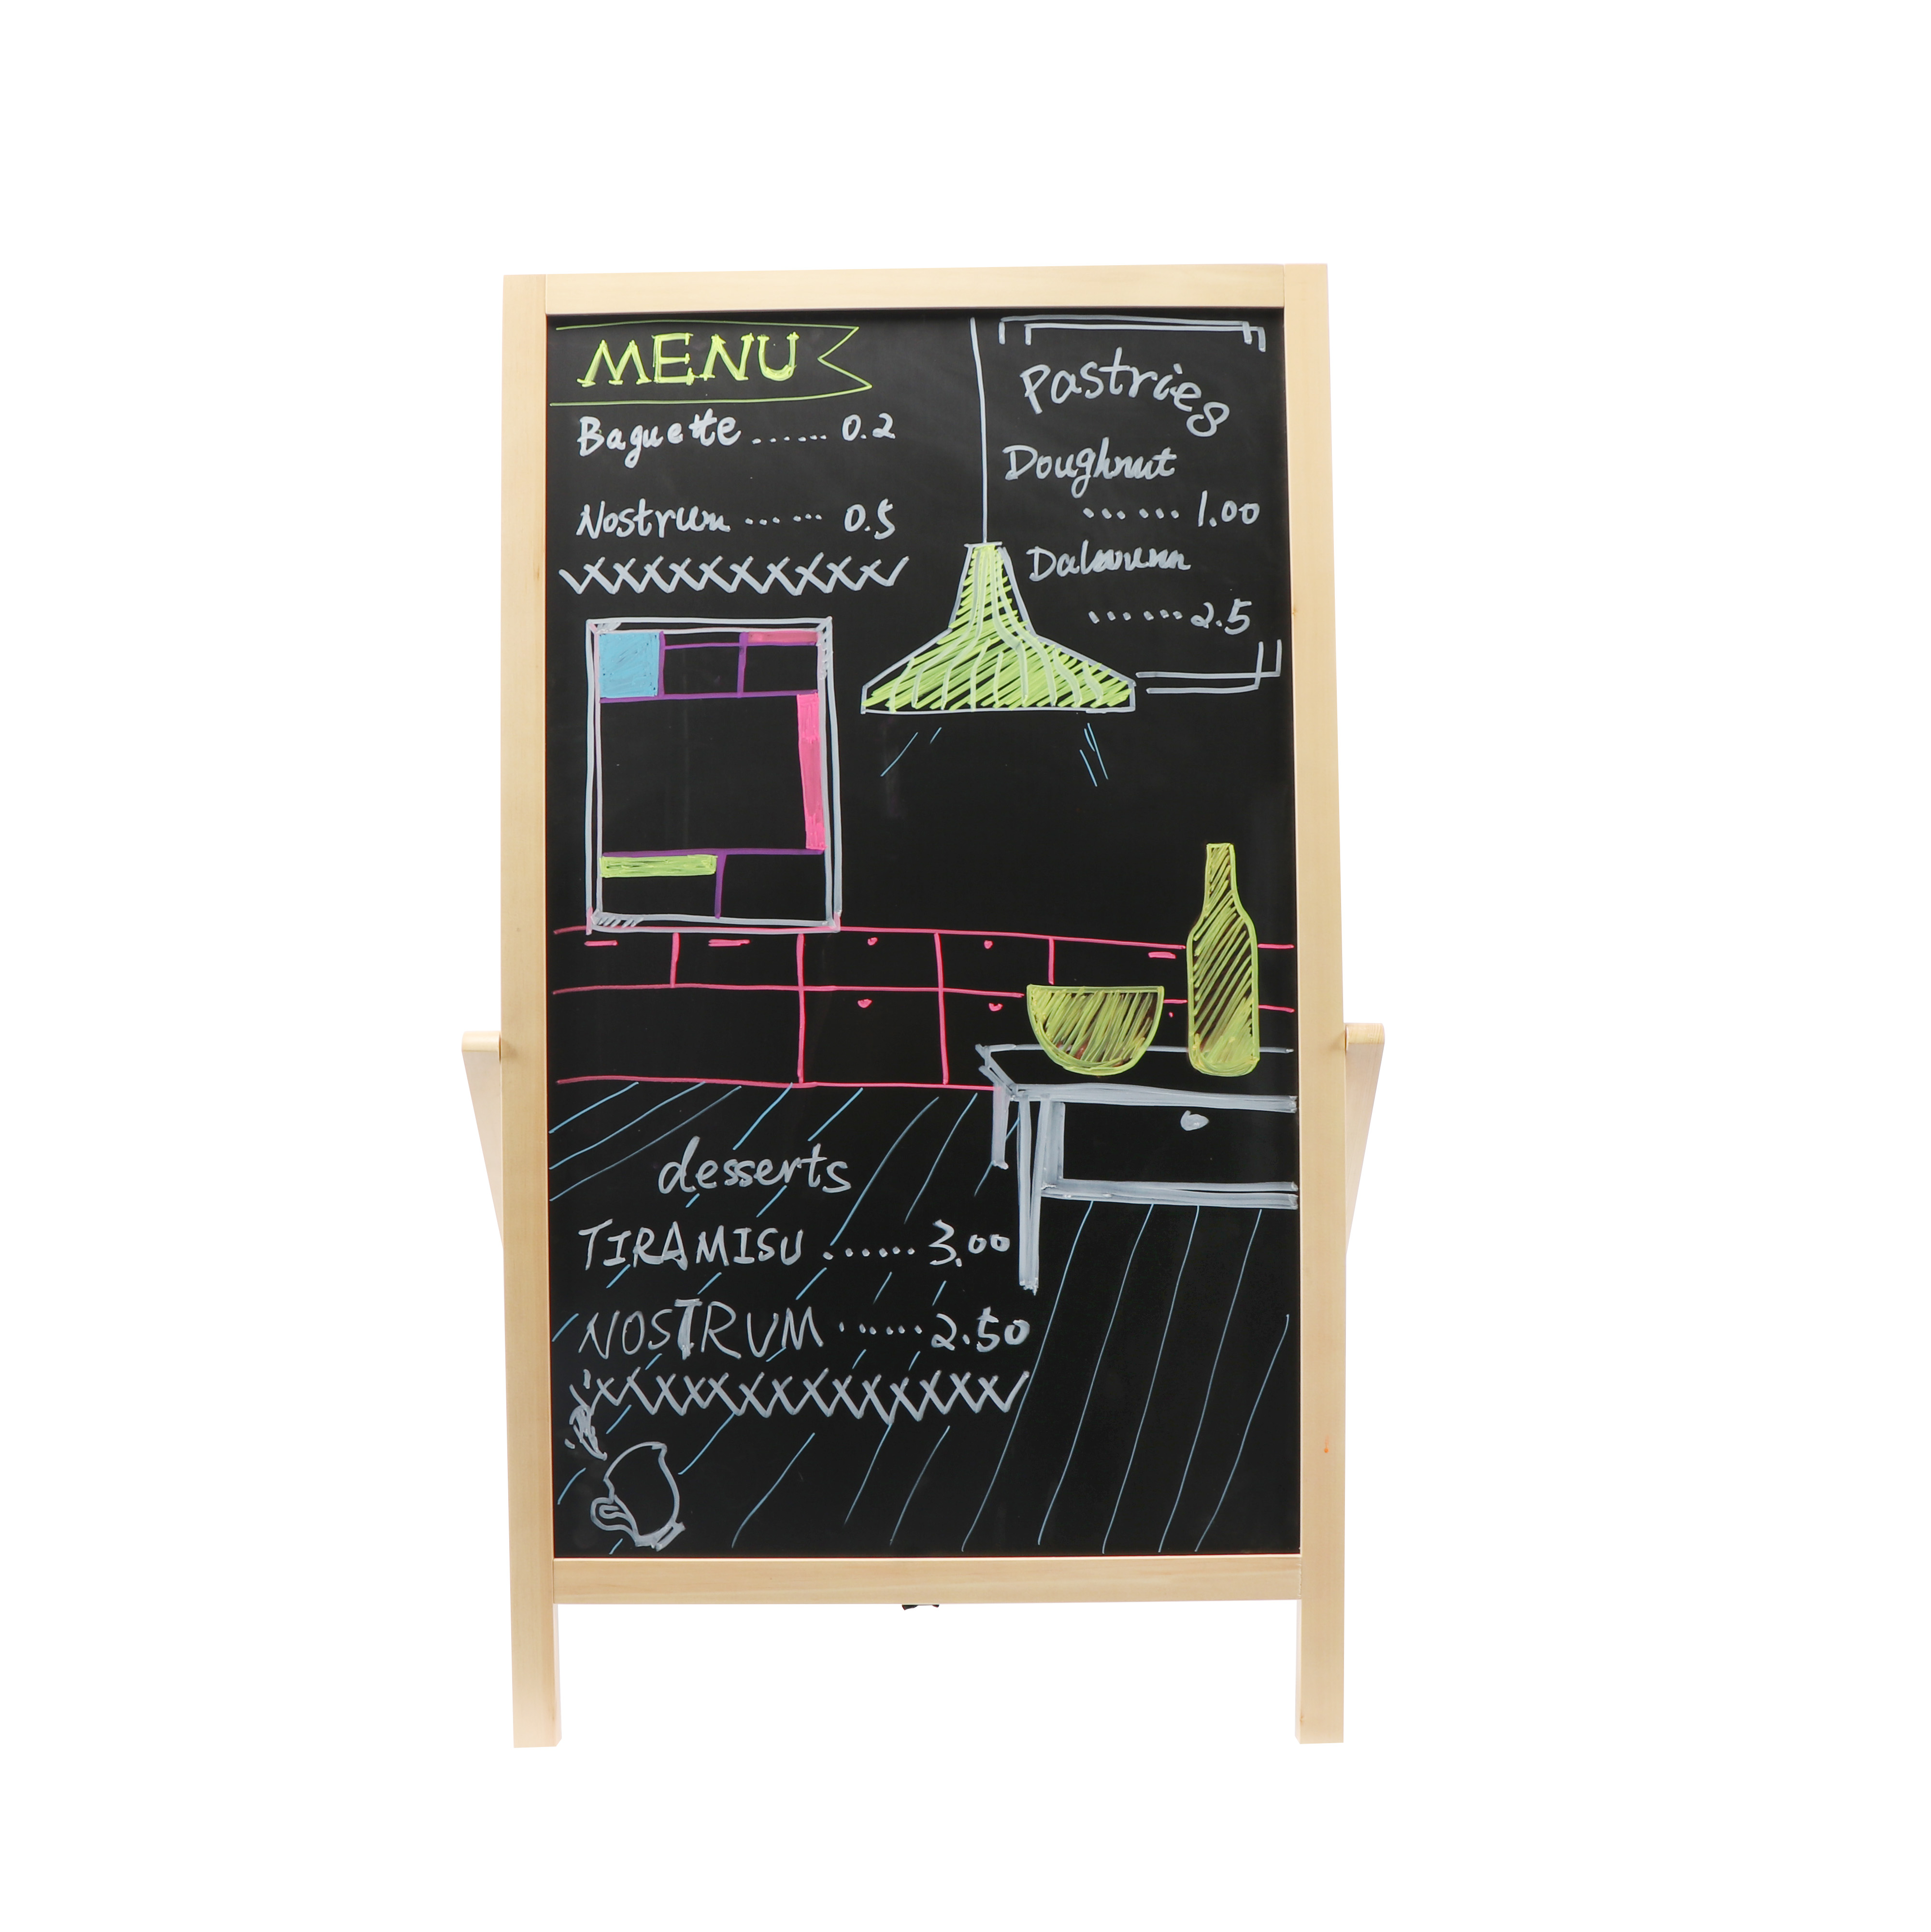 MENU
Baguette ...... 0.2
Nostrum ...... 0.5
Pastries
Doughnut
...... 1.00
...... 2.5
desserts
TIRAMISU ....... 3.00
NOSTRUM ...... 2.50